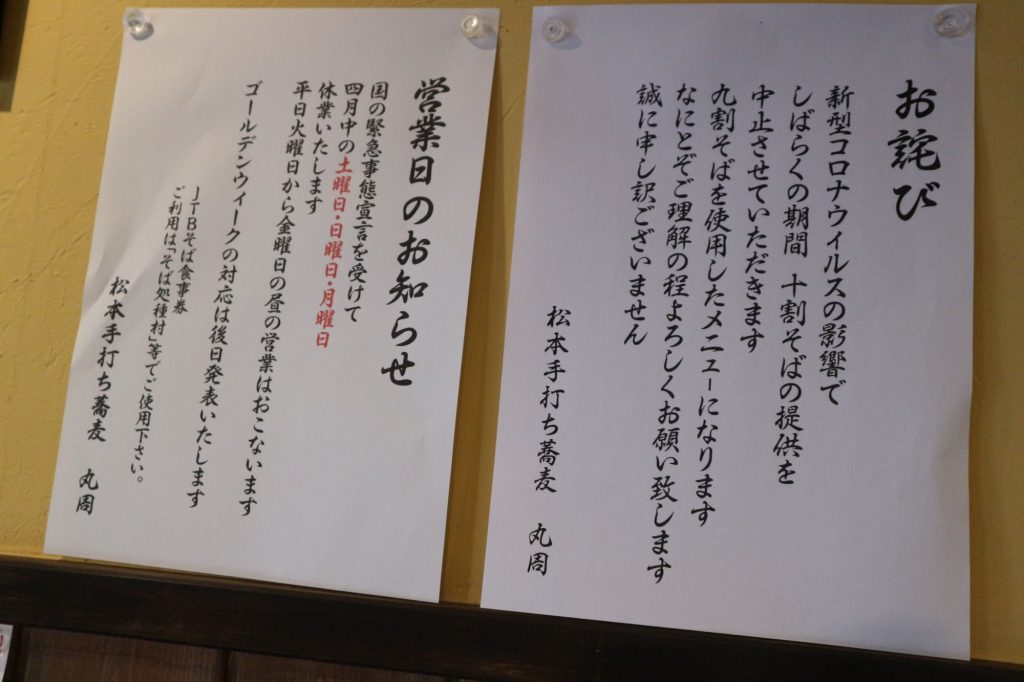 お詫び
新型コロナウイルスの影響で
しばらくの期間　十割そばの提供を
中止させていただきます
九割そばを使用したメニューになります
なにとぞご理解の程よろしくお願い致します
誠に申し訳ございません
松本手打ち蕎麦　丸周
営業日のお知らせ
国の緊急事態宣言を受けて
四月中の土曜日・日曜日・月曜日
休業いたします
平日火曜日から金曜日の昼の営業はおこないます
ゴールデンウィークの対応は後日発表いたします
JTBそば食事券
ご利用は「そば処種村」等でご使用下さい。
松本手打ち蕎麦　丸周